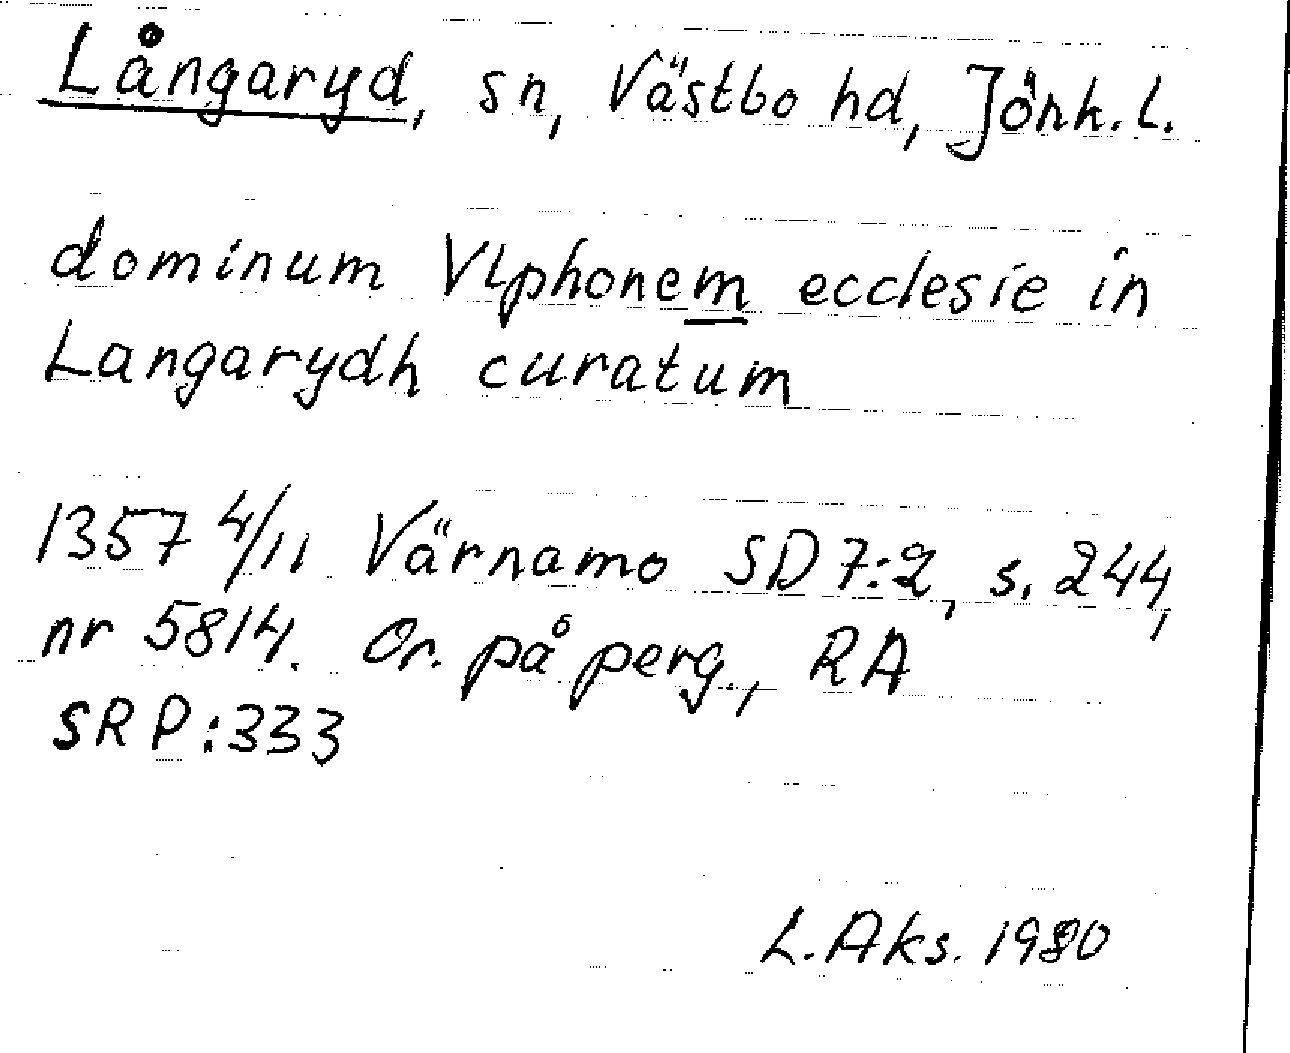 Långaryd, sn, Västbo hd, Jönk. l.
dominum Vlphonem ecclesie in
Langarydh curatum
1357 4/11 Värnamo SD 7:2, s. 244,
nr 5814. Or. på perg., RA
SRP:333
L. Aks. 1980